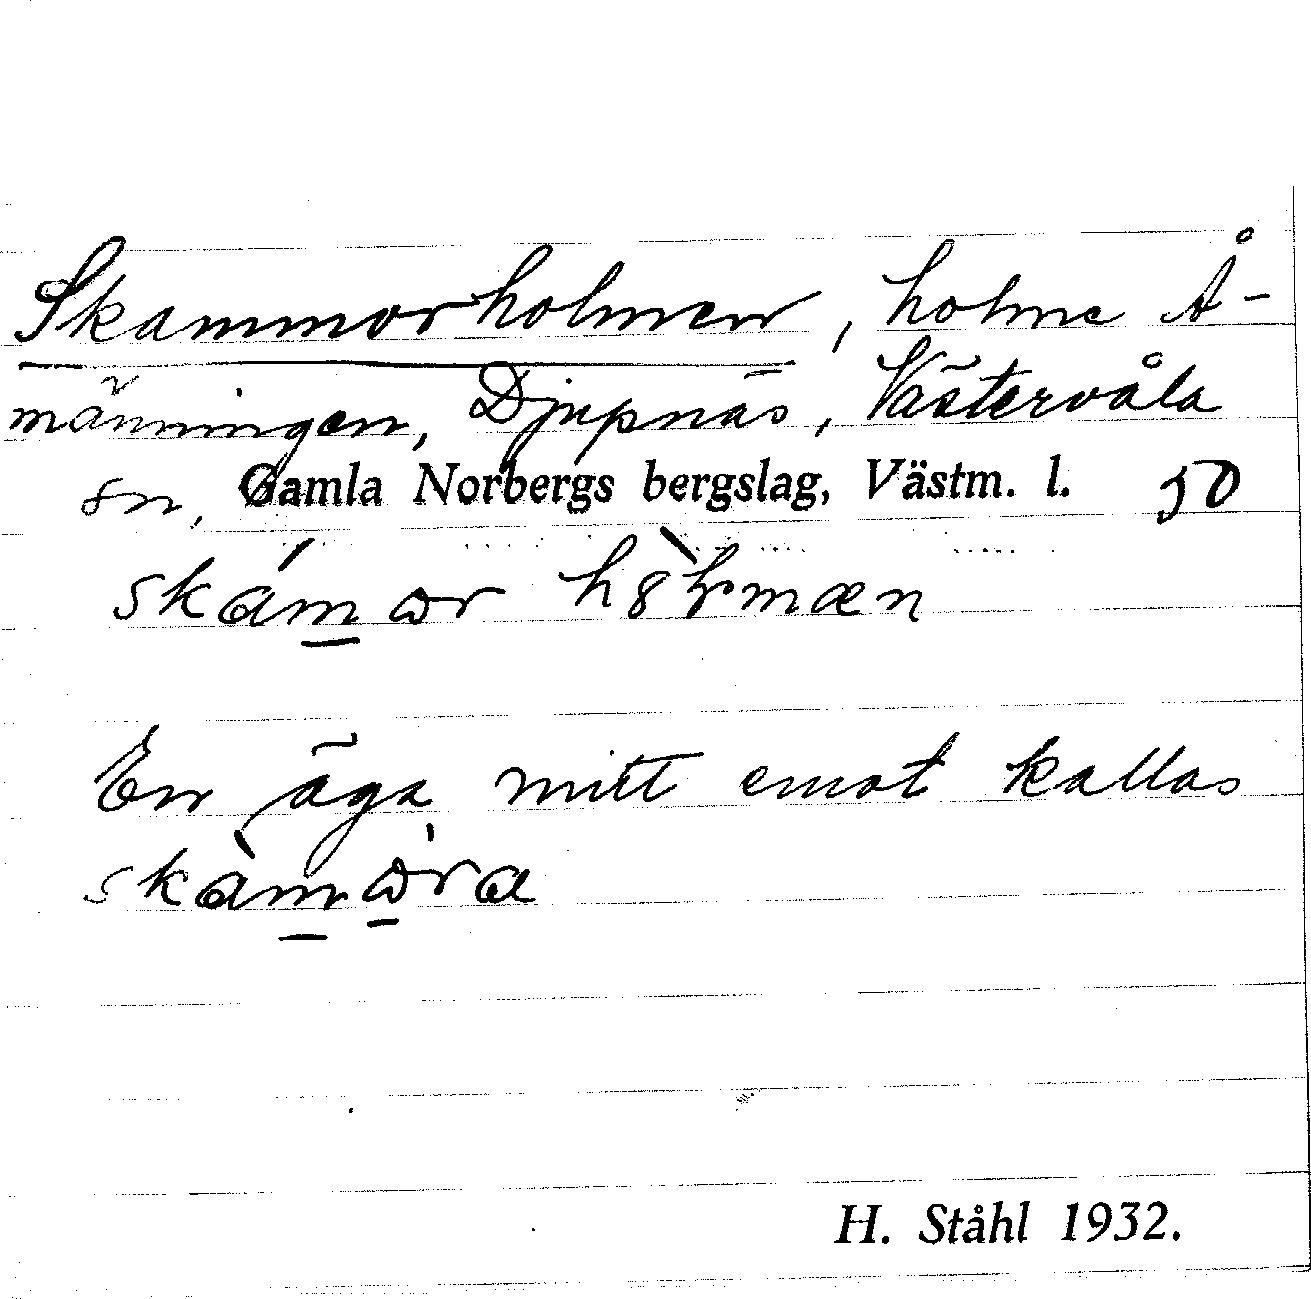 Skammorholmen, holme Å-
männingen, Djupnäs, Västervåla
sn, Gamla Norbergs bergslag, Västm. l. 50
En äga mitt emot kallas
H. Ståhl 1932.